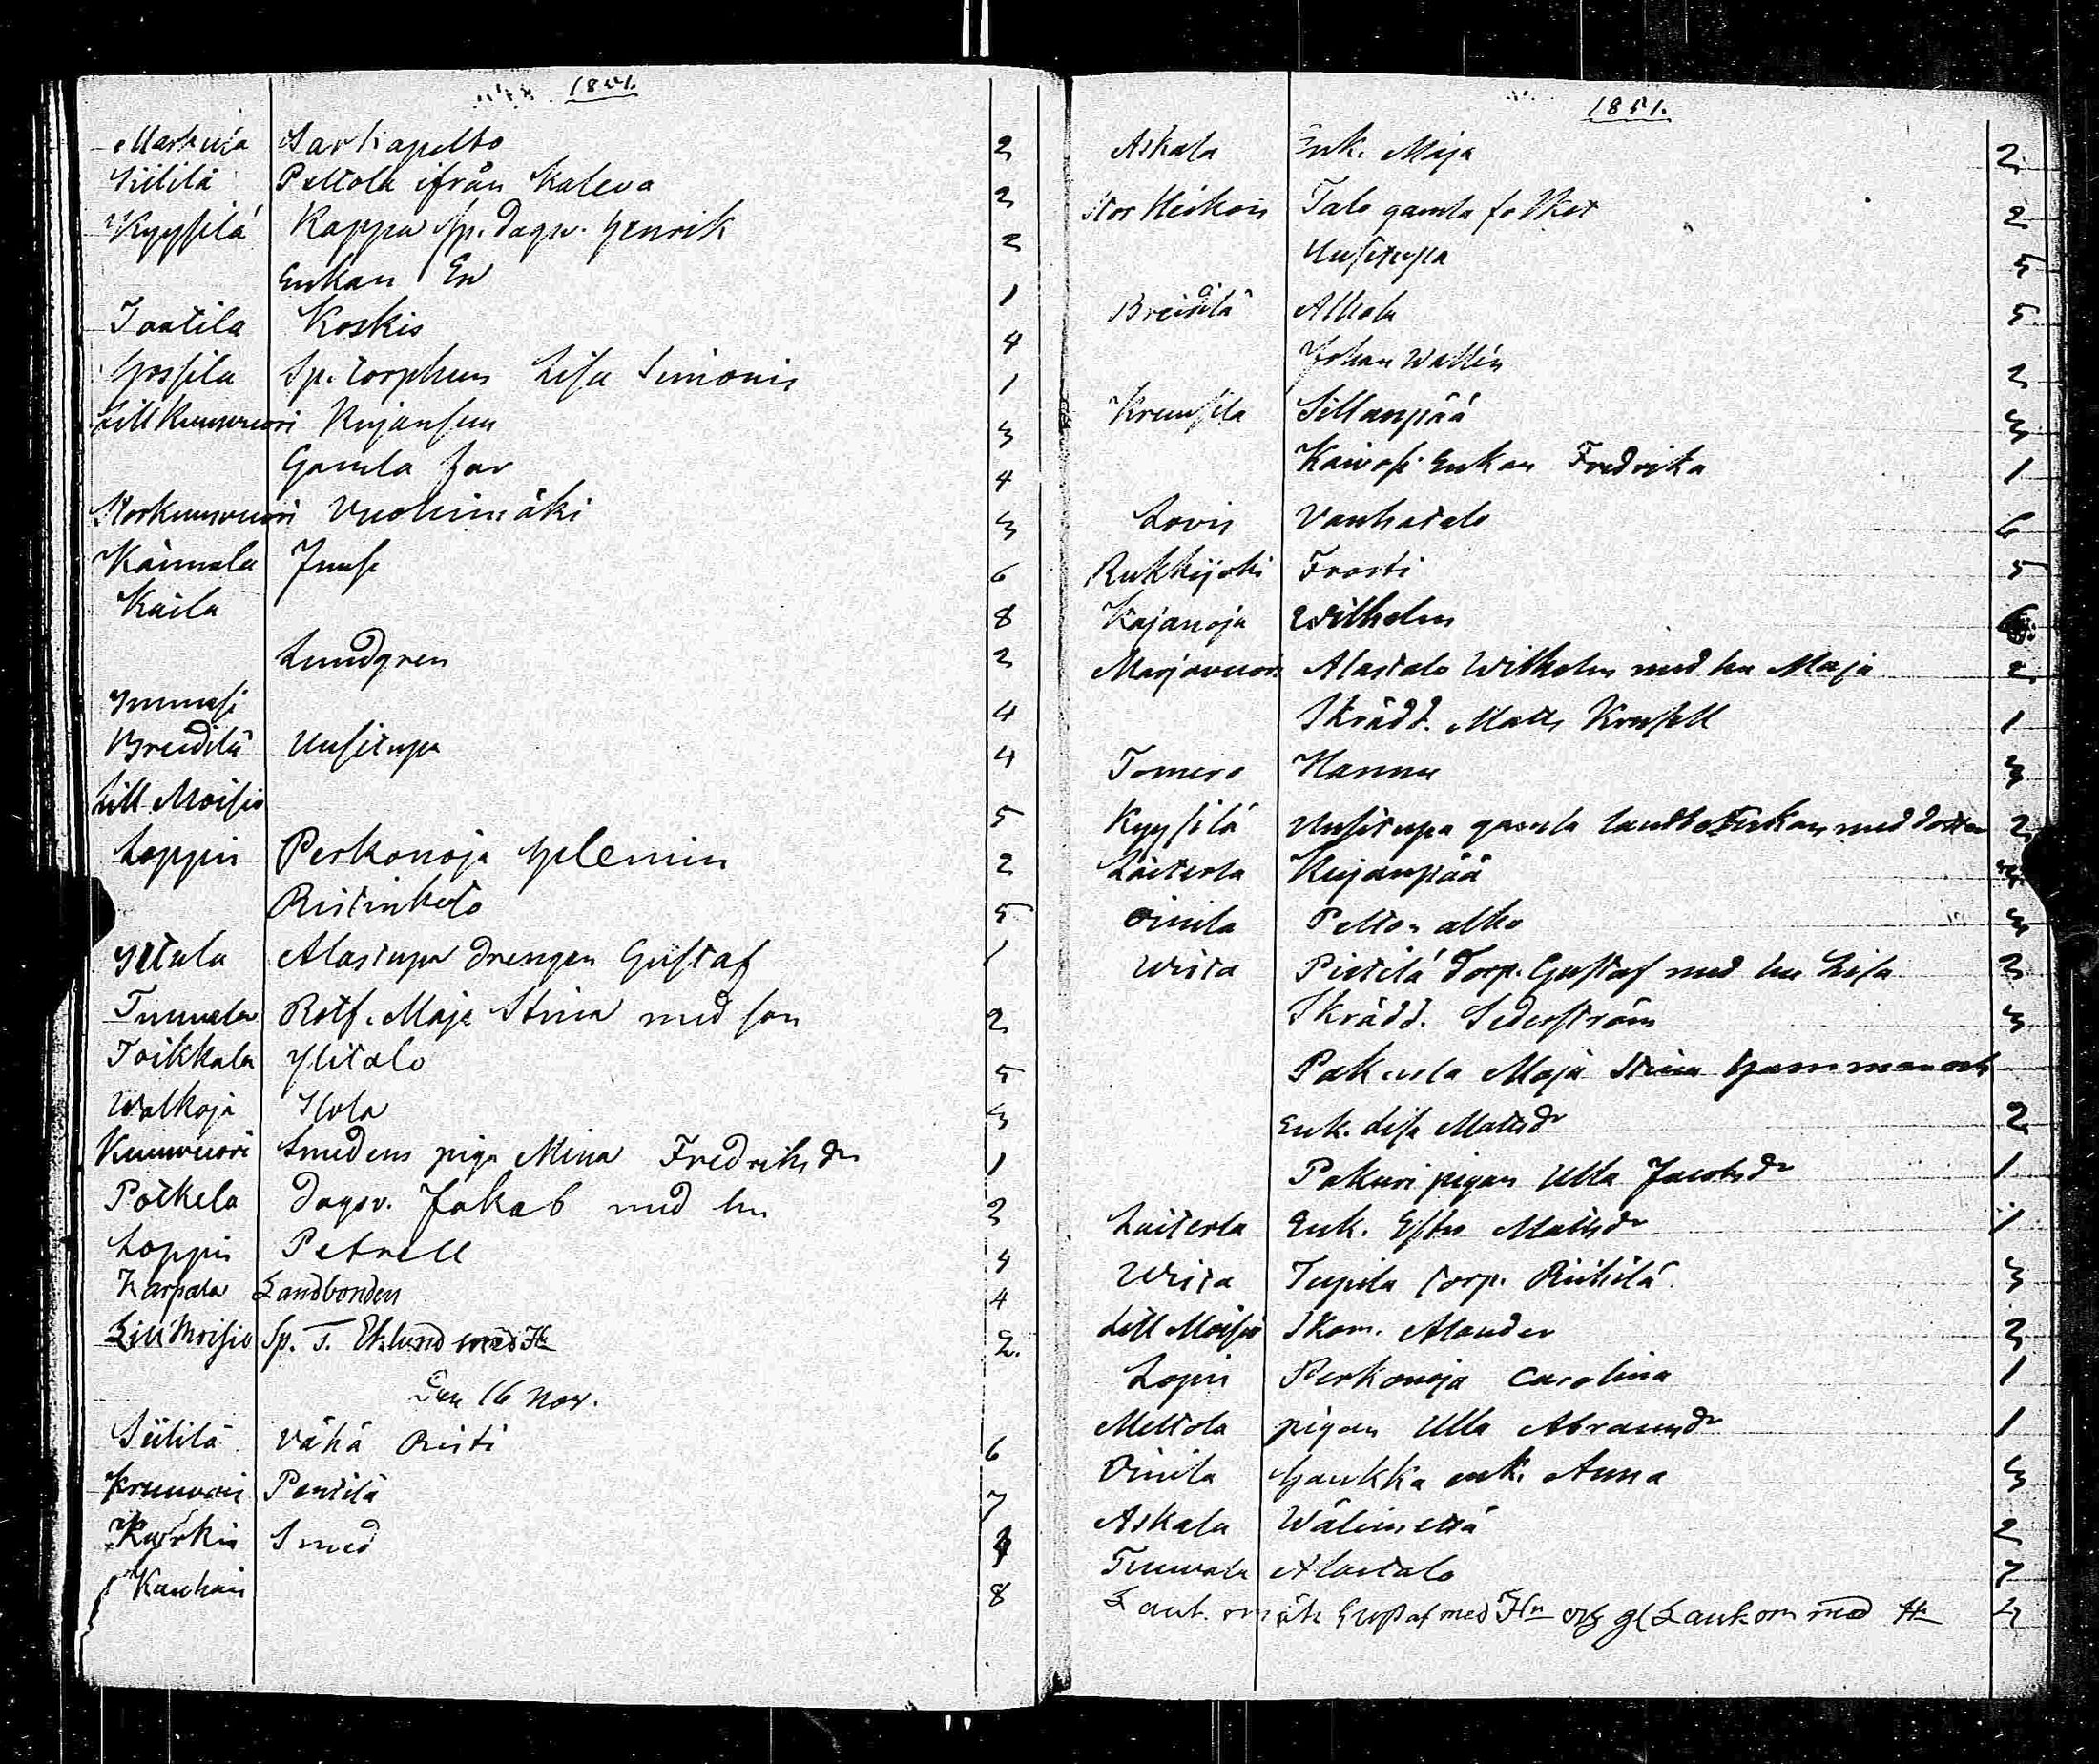 1851.
Markula Sarkapelto 2
Siililä Peltola ifrån Kaleva 2
Kyysilä Kappa Sp. dagv. Henrik 2
Enkan Ev 1
Jaatila Koskis 4
Hossila Sp. torphus Lisa Simonis 1
Lill Kuuvuori Kujansuu 3
Gamla far 4
Storkuuvuori Vuohimäki 3
Käimala Juusi 6
Kaila 8
Lundgren 2
Immusi 4
Breidilä Uusitupa 4
Lill Moisio 5
Loppis Perkonoja Hlemin 2
Ristinketo 5
Yttala Alastupa drengen Gustaf 1
Tuuvala Rotf. Maja Stina med son 2
Toikkala Ylitalo 5
Walkoja Isola 3
Kuuvuori Smedens piga Mina Fredriksdr 1
Potkela dagsv. Jakab med hu 3
Loppis Petrell 4
Karpala Landbonden 4
Lill Moisio Sp. T. Eklund med Hu 2.
Den 16 Nov.
Siililä Vähä Risti 6
Kruuvori Pentilä 7
Kurkis Smed
Kauhais 8
1851.
Askala Enk. Maja 2
Stor Heikois Talo gamla folket 2
Uusitupa 5
Breidilä Alhola 5
Johan Wallin 2
Kruusila Sillanpää 3
Kaivosi Enkan Fredrika 1
Lovis Vanhatalo 6
Rukkijoki Frosti 5
Kajanoja Wilhelm 6
Marjavuori Alastalo Wilhelm med hu Maja 2
Skrädd. Matts Krusell 1
Tomero Hannu 3
Kyysilä Uusitupa gamla landboEnkan med dotter 2
Laiterla Kujanpää
Oinila Pelton alho 3
Wista Pietilä Torp. Gustaf med hu Lisa 2
Skrädd. Sederström 3
Pakula Maja Stina Hammar och
Enk. Lisa Mattsdr 2
Pakuri pigan Ulla Jacobsdr 1
Laiterla Enk. Ester Mattsdr 1
Wista Tupila torp. Riihilä 3
Lill Moisio Skom. Alander 2
Lopis Perkonoja Carolina 1
Meltola pigan Ulla Abramsdr 1
Oinila Haukka enk. Anna 3
Askala Wälimettä 2
Tuuvala Alastalo 7
Gustaf med Hu och gl Lankom med Hu